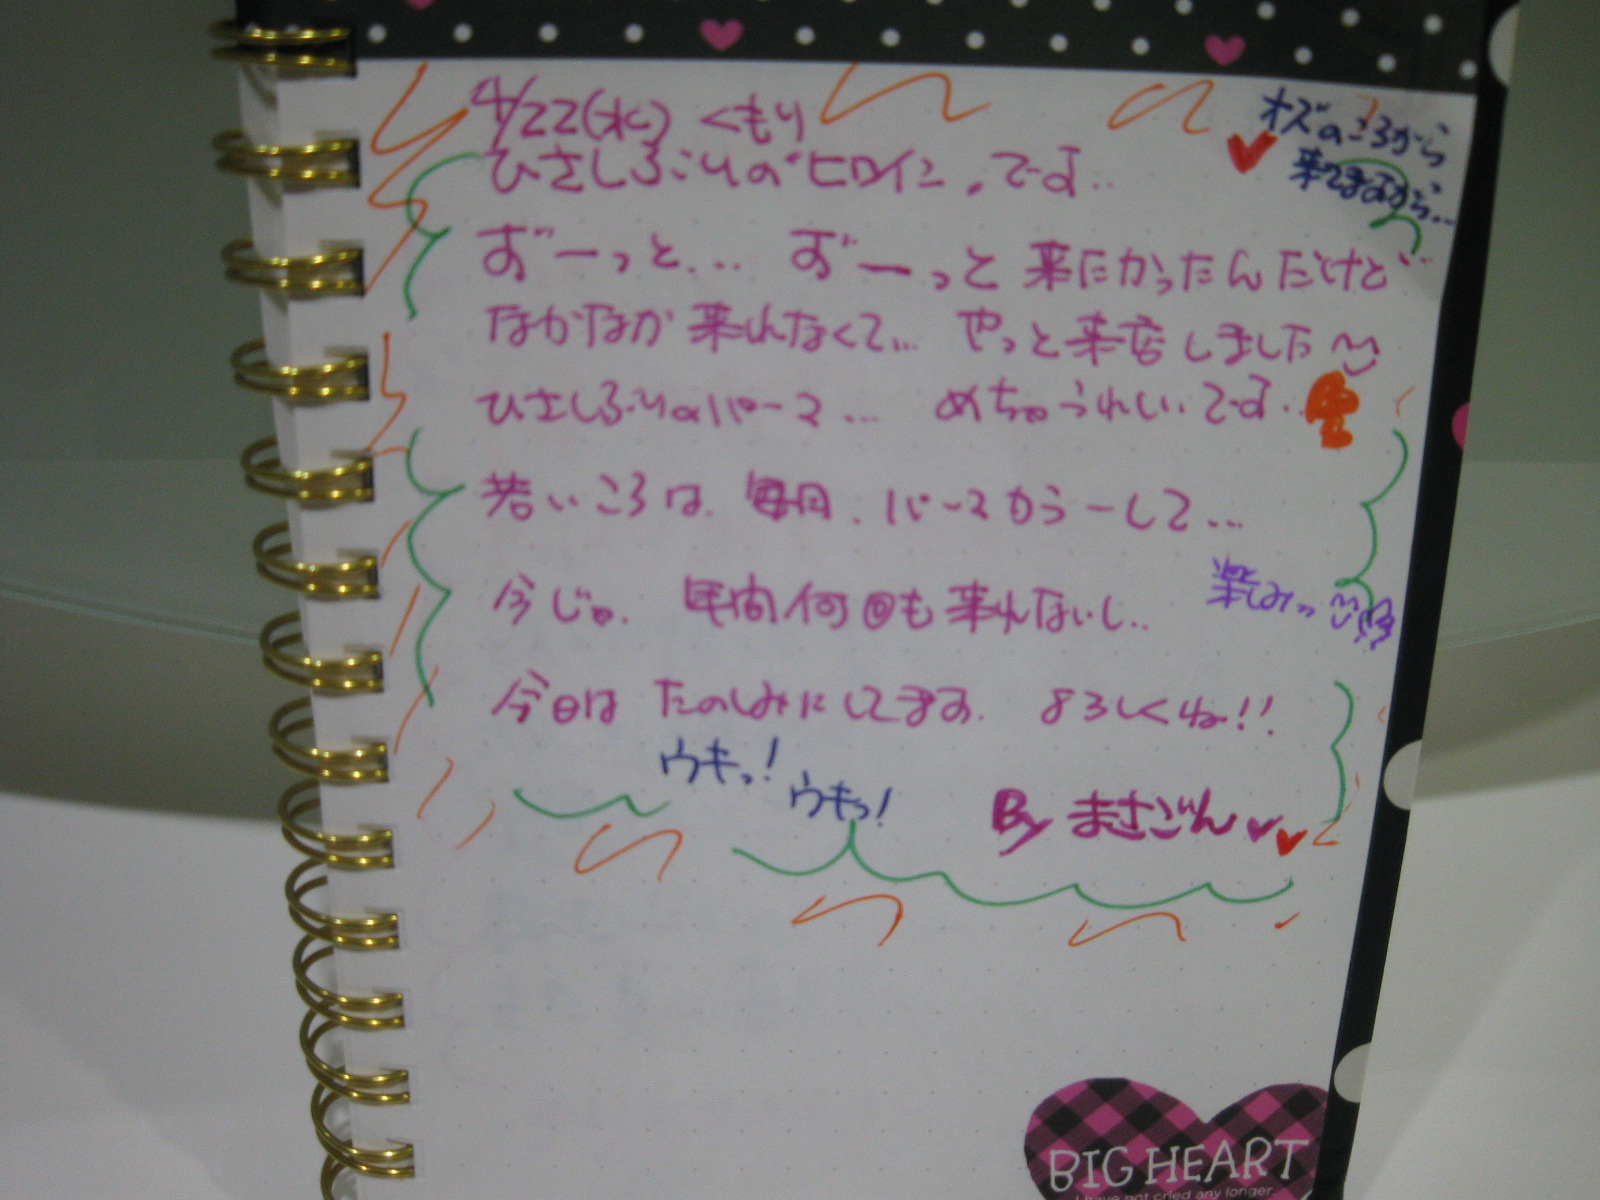 4/22(水) くもり
オズのころから
来てますから...
ひさしぶりの"ヒロイン"です..
ずーっと... ずーっと来たかったんだけど..
なかなか来れなくて... やっと来店しました
ひさしぶりのパーマ... めちゅうれしいです..
若いころは、毎月、パーマかラーして...
今じゃ、年間何回も来れないし..
楽しみっ
今日は たのしみにしてます。 よろしくね!!
ウキっ!
ウキっ!
By まさごん
BIG HEART
I have not cried any longer.